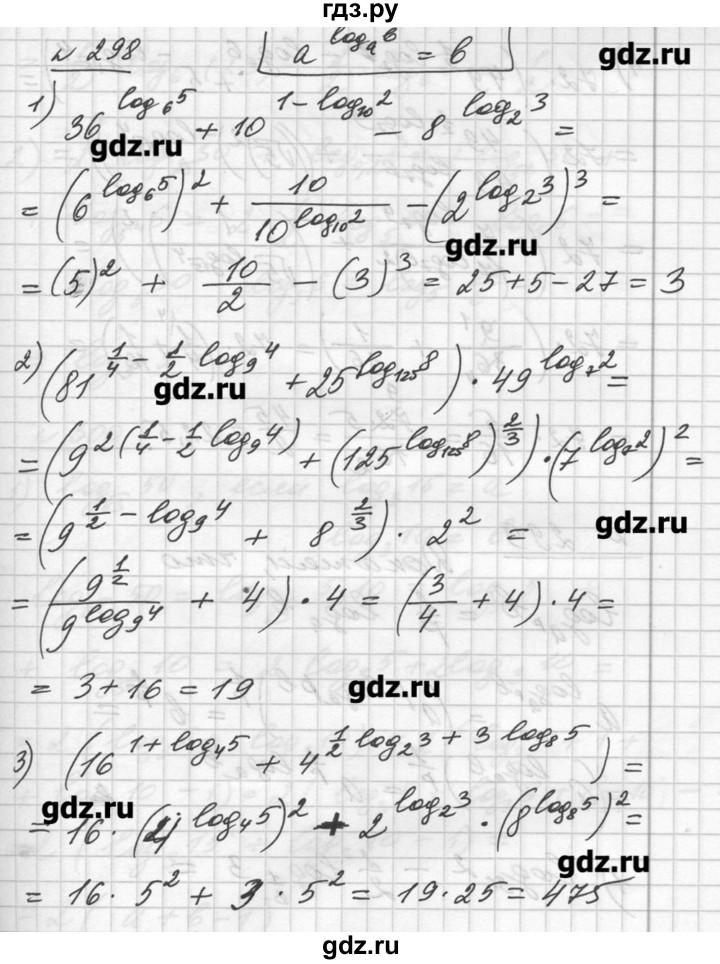 гдз.ру
№ 298 a^{log_a b} = b
gdz.ru
1) 36^{log_6 5} + 10^{1 - log_10 2} - 8^{log_2 3} =
gdz.ru
= (6^{log_6 5})^2 + 10/10^{log_10 2} - (2^{log_2 3})^3 =
gdz.ru
= (5)^2 + 10/2 - (3)^3 = 25+5-27 = 3
2) (81^{1/4 - 1/2 log_9 4} + 25^{log_125 8}) · 49^{log_7 2} =
gdz.ru
= (9^{2(1/4 - 1/2 log_9 4)} + (125^{log_125 8})^{2/3}) · (7^{log_7 2})^2 =
= (9^{1/2 - log_9 4} + 8^{2/3}) · 2^2 =
gdz.ru
= (9^{1/2}/9^{log_9 4} + 4) · 4 = (3/4 + 4) · 4 =
= 3+16 = 19
gdz.ru
3) (16^{1+log_4 5} + 4^{1/2 log_2 3 + 3 log_8 5}) =
gdz.ru
= 16 · (4^{log_4 5})^2 + 2^{log_2 3} · (8^{log_8 5})^2 =
gdz.ru
= 16 · 5^2 + 3 · 5^2 = 19·25 = 475
gdz.ru